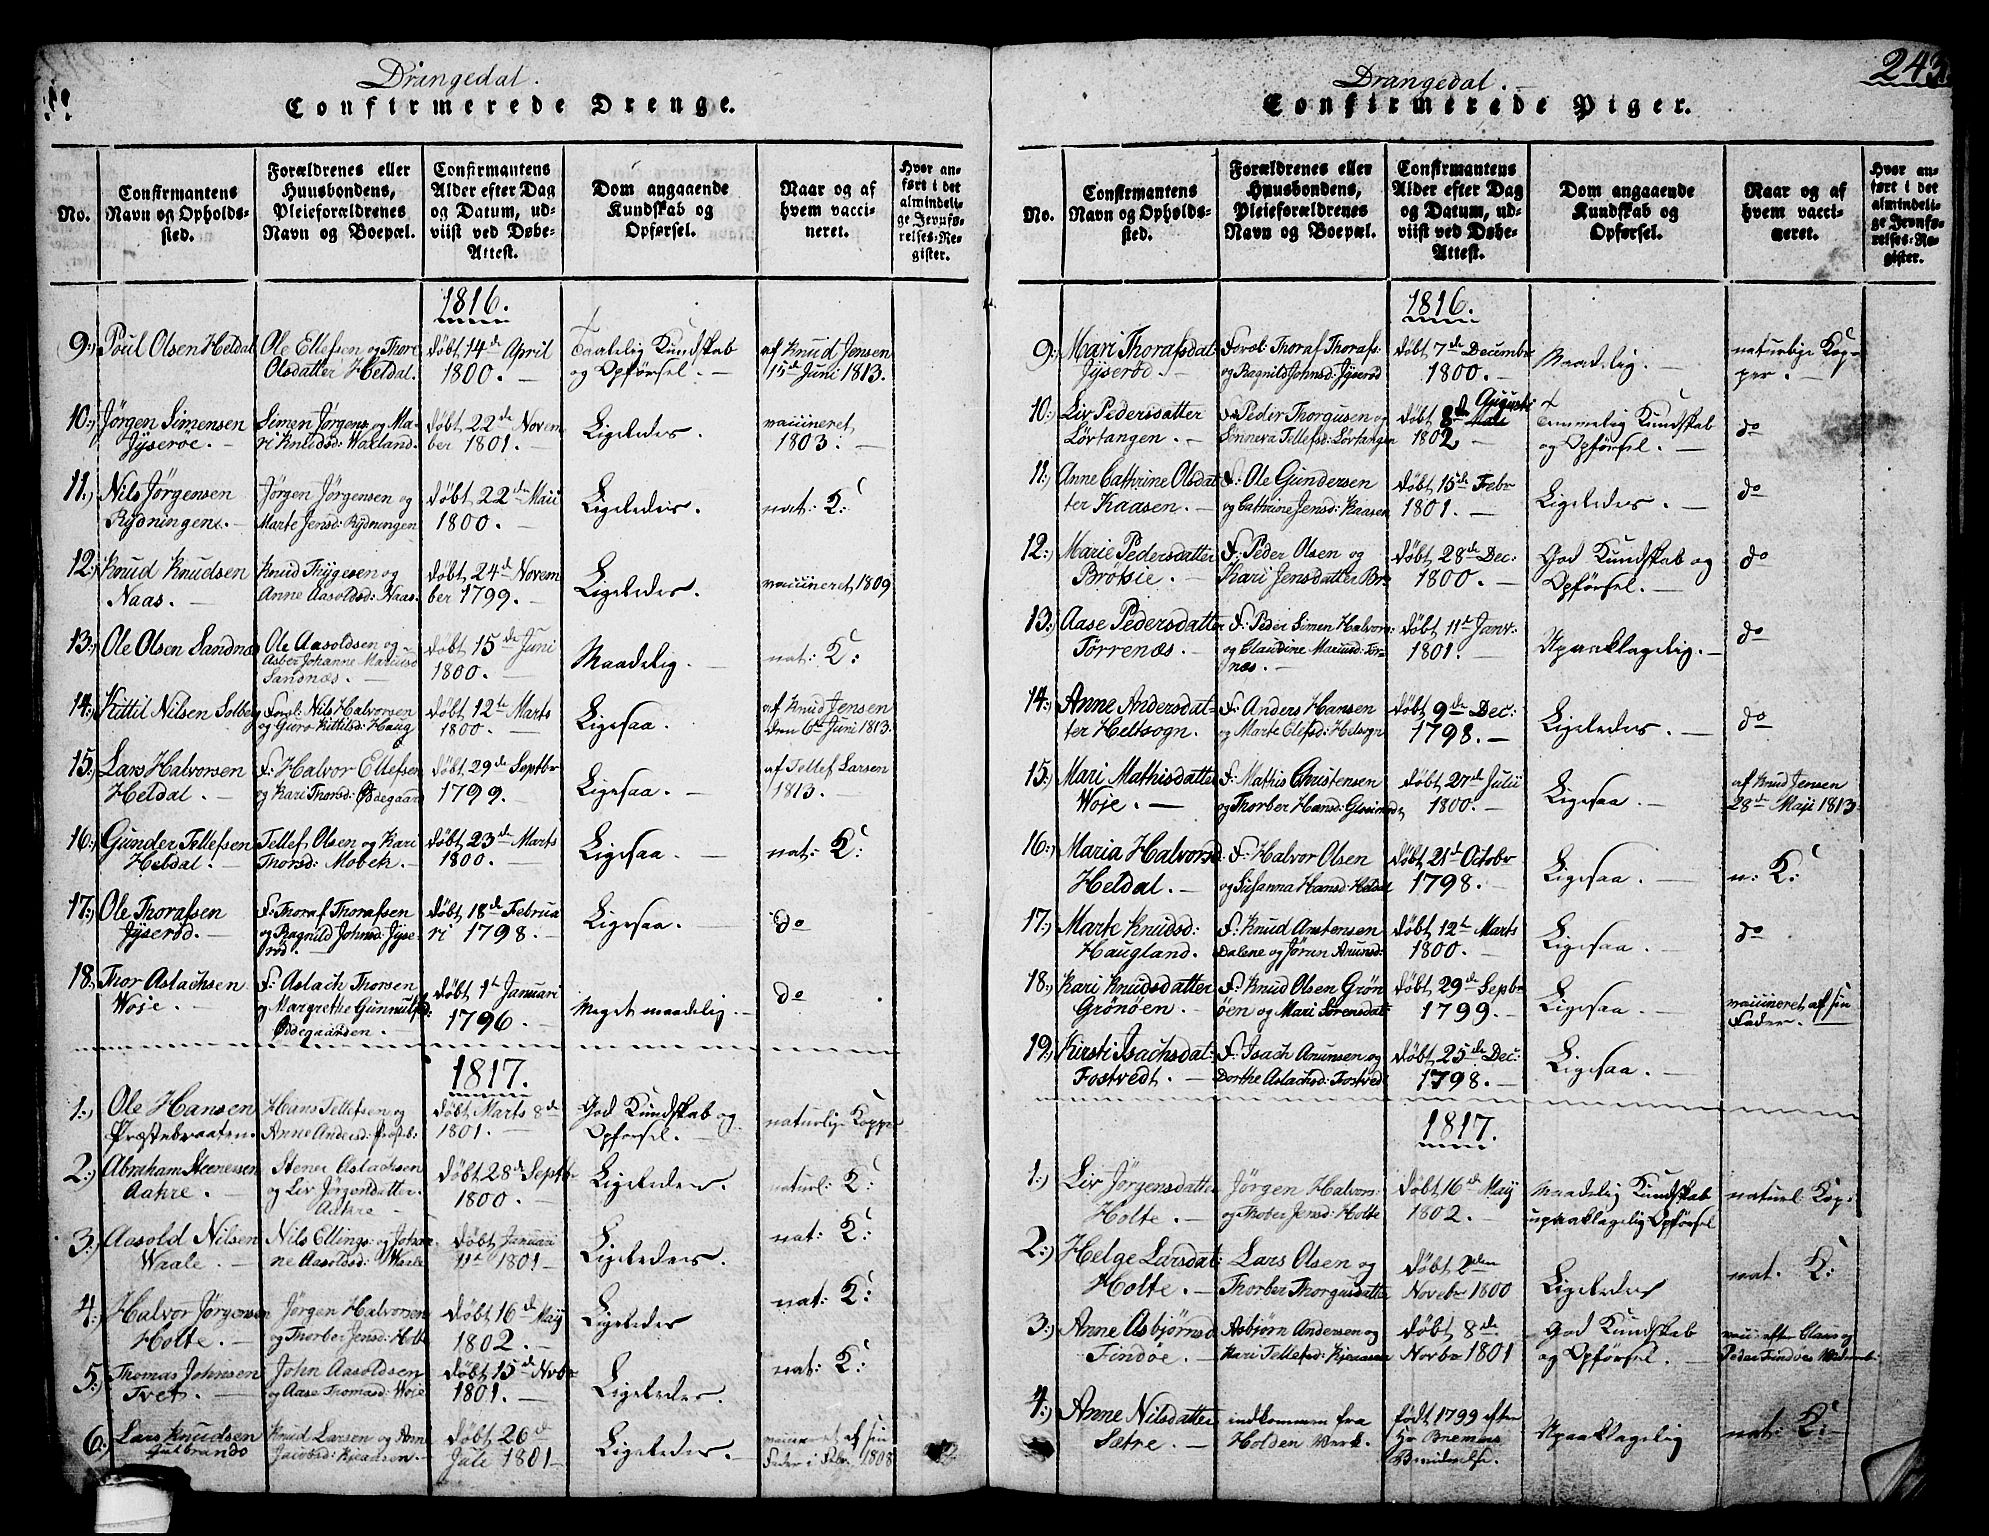 Drangedal.
Confirmerede Drenge.
No.
Confirmantens Navn og Opholds-sted.
Forældrenes eller Huusbondens, Pleieforældrenes Navn og Boepæl.
Confirmantens Alder efter Dag og Datum, ud-viist ved Døbe-Attest.
Dom angaaende Kundskab og Opførsel.
Naar og af hvem vacci-neret.
Hvor an-ført i det almindeli-ge Jevnfø-relses-Re-gister.
1816.
9:) Poul Olsen Heldal Ole Ellefsen og Thore Døbt 14de April Taalelig Kundskab af Knud Jensen
Olsdatter Heldal. 1800. og Opførsel. 15de Juni 1813.
10:) Jörgen Simensen Simen Jörgens og Ma- døbt 22de Novem Ligeledes. vaccineret
Jyseröe. ri Knudsd: Waaland. ber 1801. 1803.
11:) Nils Jörgensen Jörgen Jörgensen og døbt 22de Maii Ligeledes. nat: K:
Rydningen. Marte Jensd: Rydningen 1800.
12:) Knud Knudsen Knud Thygesen og døbt 24de Novem Ligeledes. vaccineret 1809
Naas. Anne Aasoldsd: Naas. ber 1799.
13:) Ole Olsen Sandnæs Ole Aasoldsen og døbt 15de Juni Maadelig. nat: K:
Johanne Sandnæs. 1800.
14:) Kittil Nilsen Solberg Foræl: Nils Halvorsen døbt 12te Marts Ligesaa. af Knud Jensen
og Guro Kittilsd: Haug 1800. den 6te Juni 1813.
15:) Lars Halvorsen F: Halvor Ellefsen døbt 29de Septbr Ligesaa. af Tellef Larsen
Heldal. og Kari Thorsd: Ødegaard 1799. 1813.
16:) Gunder Tellefsen Tellef Olsen og Kari døbt 23de Marts Ligesaa. nat: K:
Heldal. Thorsd: Mobek. 1800.
17:) Ole Thorafsen F: Thoraf Thorafsen døbt 18de Februa Ligesaa. do
Jyseröd. og Ragnild Johnsd: Jyse-röd. ri 1798.
18. Thor Aslachsen F: Aslach Thorsen døbt 1te Januari Meget maadelig. do
Woie. og Margrethe Gunnulfsd: Ødegaardsen. 1796.
1817.
1:) Ole Hansen Hans Tellefsen og Døbt Marts 8de God Kundskab og naturlige Kopper
Præstebraaten. Anne Andersd: Præsteb: 1801. Opførsel.
2:) Abraham Steenersen Stener Aslachsen Døbt 28de Septbr Ligeledes. naturl: K:
Aakre. og Liv Jörgensdatter. Aakre 1800.
3:) Aasold Nilsen Nils Ellings: og Johan- Døbt Januari Ligeledes. nat: K:
Waale. ne Aasoldsd: Waale 11te 1801
4:) Halvor Jörgensen Jörgen Halvorsen Døbt 16de Maij Ligeledes nat: K:
Holte. og Thorber Jensd: Holte 1802.
5:) Thomas Johnsen John Aasoldsen Døbt 15de Novbr Ligeledes. nat: K:
Tvet. og Aase Thomasd: Woie 1801.
6:) Lars Knudsen Knud Larsen og Anne Døbt 26de Ligeledes. vaccineret af sin
Gulbrands Jacobsd: Kjeaasen. Juli 1801 Fader i Febr. 1808
243
Drangedal.
Confirmerede Piger.
No.
Confirmantens Navn og Opholds-sted.
Forældrenes eller Huusbondens, Pleieforældrenes Navn og Boepæl.
Confirmantens Alder efter Dag og Datum, ud-viist ved Døbe-Attest.
Dom angaaende Kundskab og Opførsel.
Naar og af hvem vacci-neret.
Hvor an-ført i det almindeli-ge Jevnfø-relses-Re-gister.
1816.
9:) Mari Thorafsdat Foræl: Thoraf Thorafs: døbt 7de Decembr Maadelig. naturlige Kop-
Jyseröd. og Ragnild Johnsd: Jyseröd 1800. per.
10:) Liv Pedersdatter Peder Thorgusen og døbt 8de Augusti Temmelig Kundskab do
Lörtangen. Sönneva Tellefsd: Lörtangen 1802 og Opførsel.
11:) Anne Cathrine Olsdat F: Ole Gundersen døbt 15de Febr Ligeledes. do
ter Kaasen. og Cathrine Jensd: Kaasen 1801.
12:) Marie Pedersdatter F: Peder Olsen og døbt 28de Dec: God Kundskab og do
Brötsie. Kari Jensdatter Br: 1800. Opførsel.
13:) Aase Pedersdatter F: Peder Simen Halvors: døbt 11te Janv: Upaaklagelig. do
Törrenæs. og Claudine Mariusd: Tör-næs. 1801.
14:) Anne Andersdat- F: Anders Hansen døbt 9de Dec: Ligeledes. do
ter Heltsogn. og Marte Elefsd: Helsogn 1798.
15:) Mari Mathisdatter F: Mathis Christensen døbt 27de Julii Ligesaa. af Knud Jensen
Woie. og Thorber Hansd: 1800. 28de Maji 1813.
16:) Maria Halvorsd F: Halvor Olsen døbt 21de Octobr Ligesaa. n: K:
Heldal. og Susanna Hansd: Heldal 1798.
17:) Marte Knudsd: F: Knud Anstensen døbt 12te Marts Ligesaa. do
Haugland. Dalene og Jören Anunsd: 1800.
18:) Kari Knudsdatter F: Knud Olsen Grön döbt 29de Septbr Ligesaa. vaccineret af sin
Grönöen. öen og Mari Sörensdat: 1799. Fader.
19:) Kirsti Isachsdat: F: Isach Anunsen og Døbt 25de Dec: Ligesaa.
Fostvedt. Dorthe Aslachsd: Fostved 1798.
1817.
1:) Liv Jörgensdatter Jörgen Halvors: Døbt 16de Maij Maadelig Kundskab naturl: Kop:
Holte. og Thober Jensd: Holte 1802. upaaklagelig Opførsel
2:) Helge Larsdat: Lars Olsen og Døbt 2den Ligeledes nat. K:
Holte. Thorber Thorgusdatter Novebr 1800
3:) Anne Asbjørnsd Asbjørn Andersen og Døbt 8de God Kundskab vacci: efter Claus og
Findöe. Kari Tellefsd: Kjeaasen Novbr 1801 og Opførsel. Peder Findöes
4:) Anne Nilsdatter indkommen fra født 1799 efter Upaaklagelig nat: K:
Sætre. Holden Værk. Hr Bremers